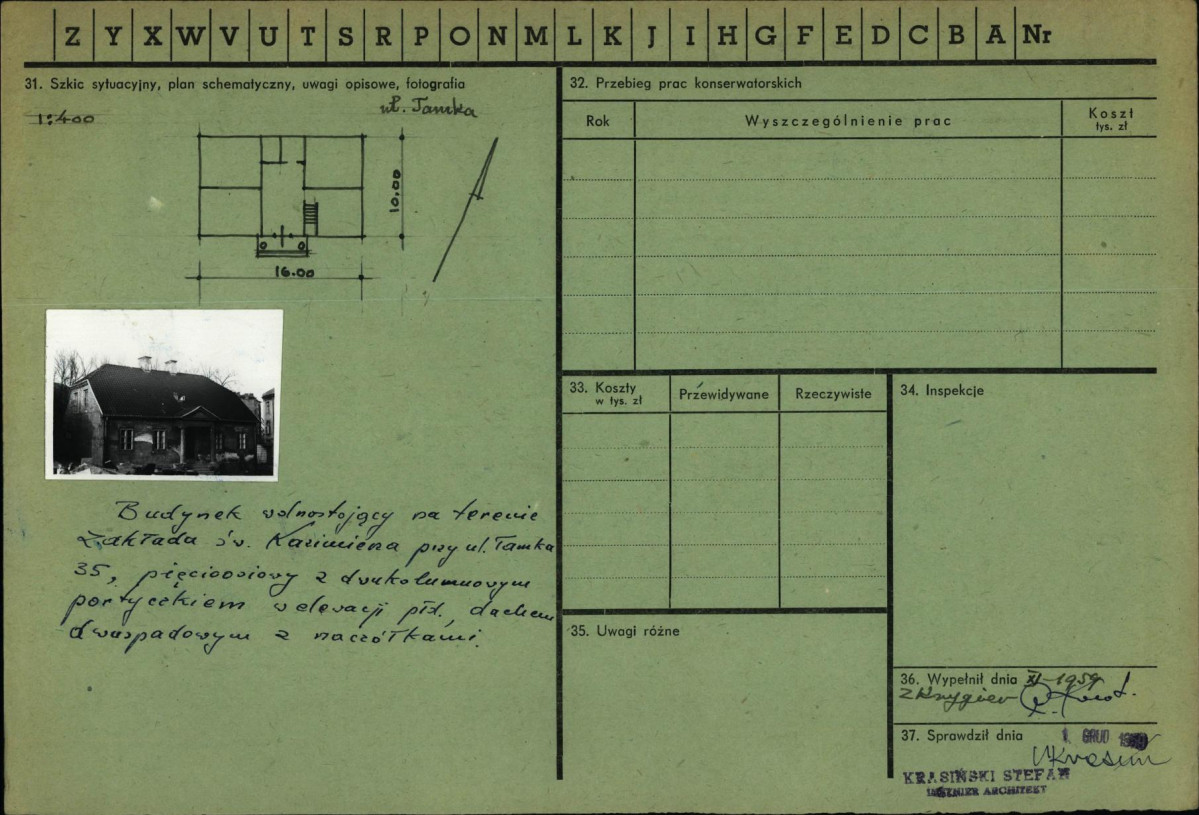 Z Y X W V U T S R P O N M L K J I H G F E D C B A Nr
31. Szkic sytuacyjny, plan schematyczny, uwagi opisowe, fotografia
ul. Tamka
1:400
10.00
16.00
Budynek wolnostojący na terenie
Zakłada św. Kazimierza przy ul. Tamka
35, pięcioosiowy z dwukolumnowym
portyczkiem w elewacji płd., dachem
dwuspadowym z naczółkami.
32. Przebieg prac konserwatorskich
Rok
Wyszczególnienie prac
Koszt
tys. zł
33. Koszty
w tys. zł
Przewidywane
Rzeczywiste
34. Inspekcje
35. Uwagi różne
36. Wypełnił dnia XI-1959
37. Sprawdził dnia
1. GRUD 1959
KRASIŃSKI STEFAN
INŻYNIER ARCHITEKT